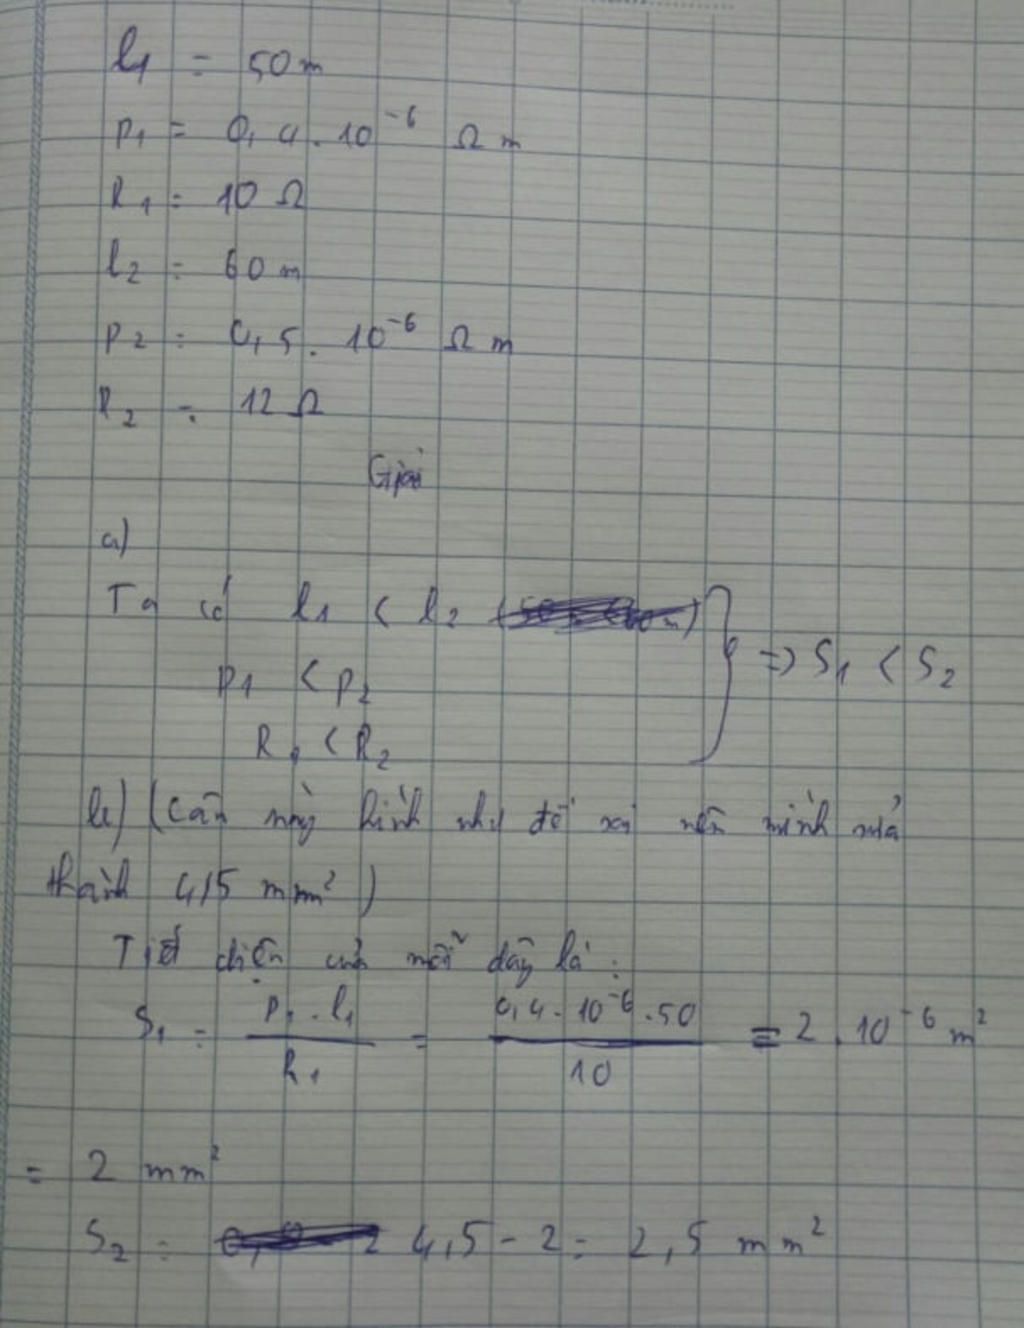 l₁ = 50 m
p₁ = 0,4 . 10⁻⁶ Ω m
R₁ = 10 Ω
l₂ = 60 m
p₂ = 0,5 . 10⁻⁶ Ω m
R₂ = 12 Ω
Giải
a)
Ta có l₁ < l₂
p₁ < p₂ } => S₁ < S₂
R₁ < R₂
b) (Câu này hình như đề sai nên mình sửa
thành 4,5 mm²)
Tiết diện của mỗi dây là :
S₁ = p₁ . l₁ / R₁ = 0,4 . 10⁻⁶ . 50 / 10 = 2 . 10⁻⁶ m²
= 2 mm²
S₂ = 4,5 - 2 = 2,5 mm²